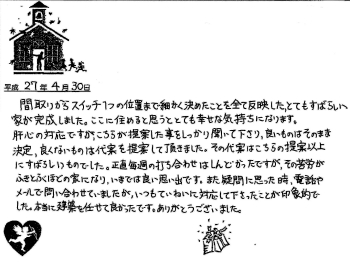 平成 27年 4月 30日
間取りからスイッチ1つの位置まで細かく決めたことを全て反映した、とてもすばらしい
家が完成しました。ここに住めると思うととても幸せな気持ちになります。
肝心の対応ですが、こちらが提案した事をしっかり聞いて下さり、良いものはそのまま
決定、良くないものは代案を提案して頂きました。その代案はこちらの提案以上
にすばらしいものでした。正直毎週の打ち合わせはしんどかったですが、その苦労が
ふきとぶくらいの家になり、いまでは良い思い出です。また疑問に思った時、電話や
メールで問い合わせていましたが、いつもていねいに対応して下さったことが印象的で
した。本当に建築を任せて良かったです。ありがとうございました。